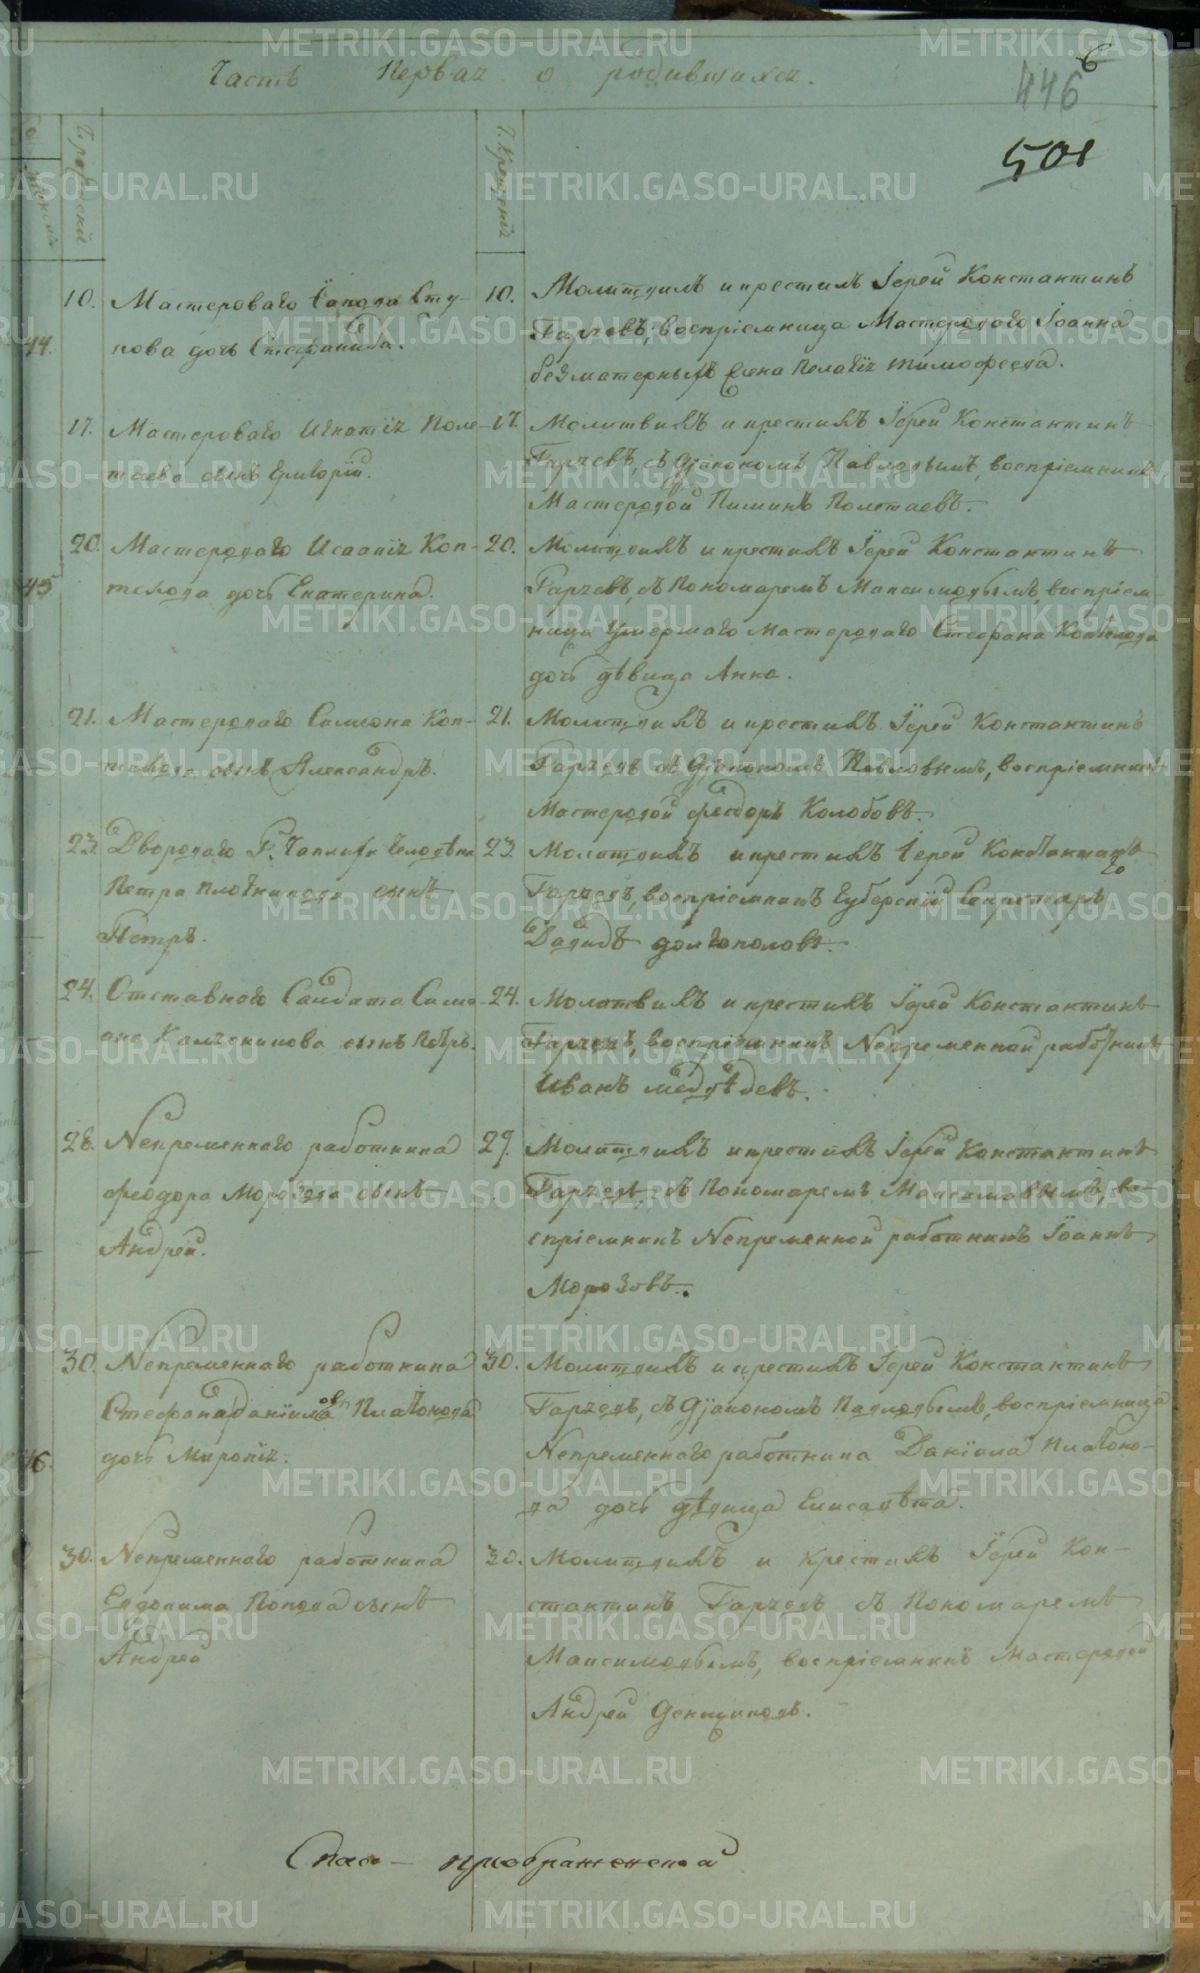 METRIKI.GASO-URAL.RU
Часть Первая о родившихся.
6
446
501
Ч. рожденiя
Ч. Крещенiя
10. Мастероваго
44. дочь Стефанида.
10. Молитвилъ и крестилъ Iерей Константинъ
Гаряевъ, воспрiемница Мастероваго Iоанна
жена Пелагiя Тимофеева.
17. Мастероваго Игнатiя Поле-
таева сынъ Григорiй.
17. Молитвилъ и крестилъ Iерей Константинъ
Гаряевъ, съ Дiакономъ Павловымъ, воспрiемникъ
Мастеровой Пиминъ Полетаевъ.
20. Мастероваго Исаакiя Коп-
45 телова дочь Екатерина.
20. Молитвилъ и крестилъ Iерей Константинъ
Гаряевъ, съ Пономаремъ Максимовымъ, воспрiем-
ница Умершаго Мастероваго Стефана Коптелова
дочь дѣвица Анна.
21. Мастероваго Симеона Коп-
телова сынъ Александръ.
21. Молитвилъ и крестилъ Iерей Константинъ
Гаряевъ съ Дiакономъ Павловымъ, воспрiемникъ
Мастеровой Феодоръ Колобовъ.
23. Двороваго Г. человѣка
Петра Плотникова сынъ
Петръ.
23. Молитвилъ и крестилъ Iерей Константинъ
Гаряевъ, воспрiемникъ Губернскiй Секретарь
Давидъ Долгополовъ.
24. Отставнаго Салдата Симе-
она сынъ Петръ.
24. Молитвилъ и крестилъ Iерей Константинъ
Гаряевъ, воспрiемникъ Непременной работникъ
Иванъ Медвѣдевъ.
28. Непременнаго работника
Феодора Морозова сынъ
Андрей.
29. Молитвилъ и крестилъ Iерей Константинъ
Гаряевъ съ Пономаремъ Максимовымъ, во-
спрiемникъ Непременной работникъ Iоаннъ
Морозовъ.
30. Непременнаго работника
Стефана Данiилова Платонова
46. дочь Миропiя.
30. Молитвилъ и крестилъ Iерей Константинъ
Гаряевъ, съ Дiакономъ Павловымъ, воспрiемница
Непременнаго работника Данiила Платоно-
ва дочь дѣвица Елисавета.
30. Непременнаго работника
Евдокима Попова сынъ
Андрей
30. Молитвилъ и крестилъ Iерей Кон-
стантинъ Гаряевъ съ Пономаремъ
Максимовымъ, воспрiемникъ Мастеровой
Андрей Денщиковъ.
Спасо-преображенской